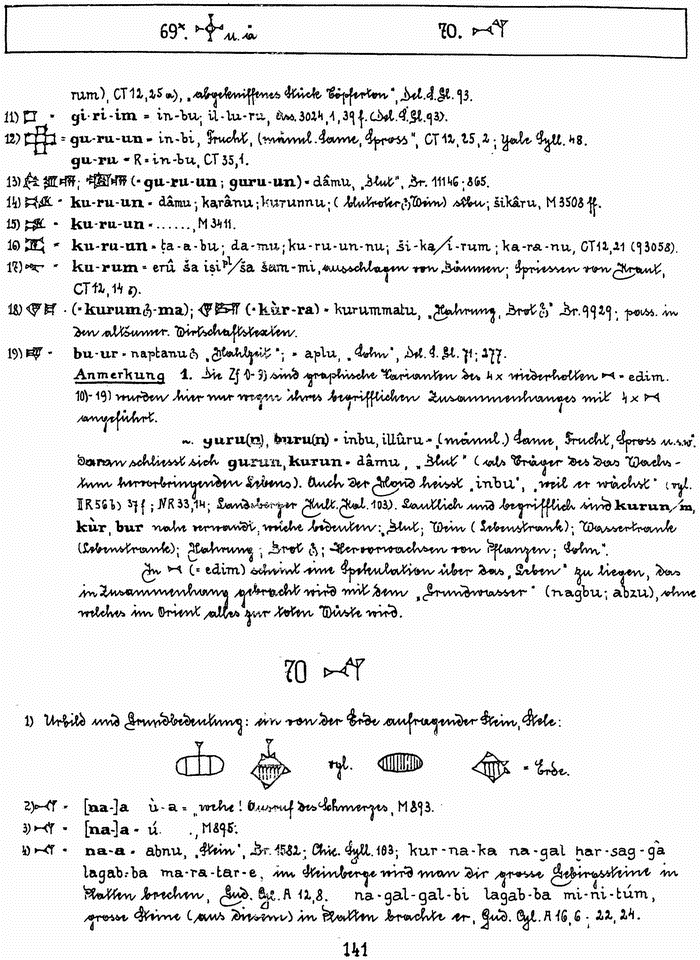 69ˣ. u.ä 70.
rum), CT 12, 25a), „abgekniffenes Stück Töpferton", Del. S. Gl. 93.
11) = gi-ri-im = in-bu; il-lu-ru, Ass. 3024, 1, 39 f. (Del. S. Gl. 93).
12) = gu-ru-un = in-bi, Frucht, (männl. Same, Spross", CT 12, 25, 2; Yale Syll. 48.
gu-ru = R = in-bu, CT 35, 1.
13) ; (= gu-ru-un; guru-un) = dâmu, „Blut", Br. 11146; 865.
14) = ku-ru-un = dâmu; karânu; kurunnu; (blutroter Wein) šikâru, M 3508 ff.
15) = ku-ru-un = ......, M 3411.
16) = ku-ru-un = ṭa-a-bu; da-mu; ku-ru-un-nu; ši-ka/i-rum; ka-ra-nu, CT 12, 21 (93058).
17) = ku-rum = erû ša iṣi pl/ša šam-mi, ausschlagen von Bäumen; Spriessen von Kraut,
CT 12, 14 b).
18) = (= kurum -ma); (= kùr-ra) = kurummatu, „Nahrung, Brot" Br. 9929; pass. in
den altsumer. Wirtschaftstexten.
19) = bu-ur = naptanu „Mahlzeit"; = aplu, „Sohn", Del. S. Gl. 71; 277.
Anmerkung 1. Die Zf 0-9) sind graphische Varianten des 4 x wiederholten = edim.
10)-19) wurden hier nur wegen ihres begrifflichen Zusammenhanges mit 4 x
angeführt.
~. guru(n), buru(n) = inbu, illûru = (männl.) Same, Frucht, Spross u.s.w.
Daran schliesst sich gurun, kurun = dâmu, „Blut" (als Träger des das Wachs-
tum hervorbringenden Lebens). Auch der Mond heisst „inbu", „weil er wächst" (vgl.
II R 56 b) 37 f; V R 33, 14; Landsberger Kult. Kal. 103). Lautlich und begrifflich sind kurun/m,
kùr, bur nahe verwandt, welche bedeuten: „Blut; Wein (Lebenstrank); Wassertrank
(Lebenstrank); Nahrung; Brot; Hervorwachsen von Pflanzen; Sohn".
In (= edim) scheint eine Spekulation über das „Leben" zu liegen, das
in Zusammenhang gebracht wird mit dem „Grundwasser" (nagbu; abzu), ohne
welches im Orient alles zur toten Wüste wird.
70
1) Urbild und Grundbedeutung: ein von der Erde aufragender Stein, Stele:
vgl. = Erde.
2) = [na-]a ù-a = „wehe! Ausruf des Schmerzes, M 893.
3) = [na-]a = ú. ., M 895.
4) = na-a = abnu, „Stein", Br. 1582; Chic. Syll. 103; kur-na-ka na-gal ḫar-sag-gà
lagab-ba ma-ra-tar-e, im Steinberge wird man dir grosse Gebirgssteine in
Platten brechen, Gud. Cyl. A 12, 8. na-gal-gal-bi lagab-ba mi-ni-túm,
grosse Steine (aus diesem) in Platten brachte er, Gud. Cyl. A 16, 6; 22, 24.
141